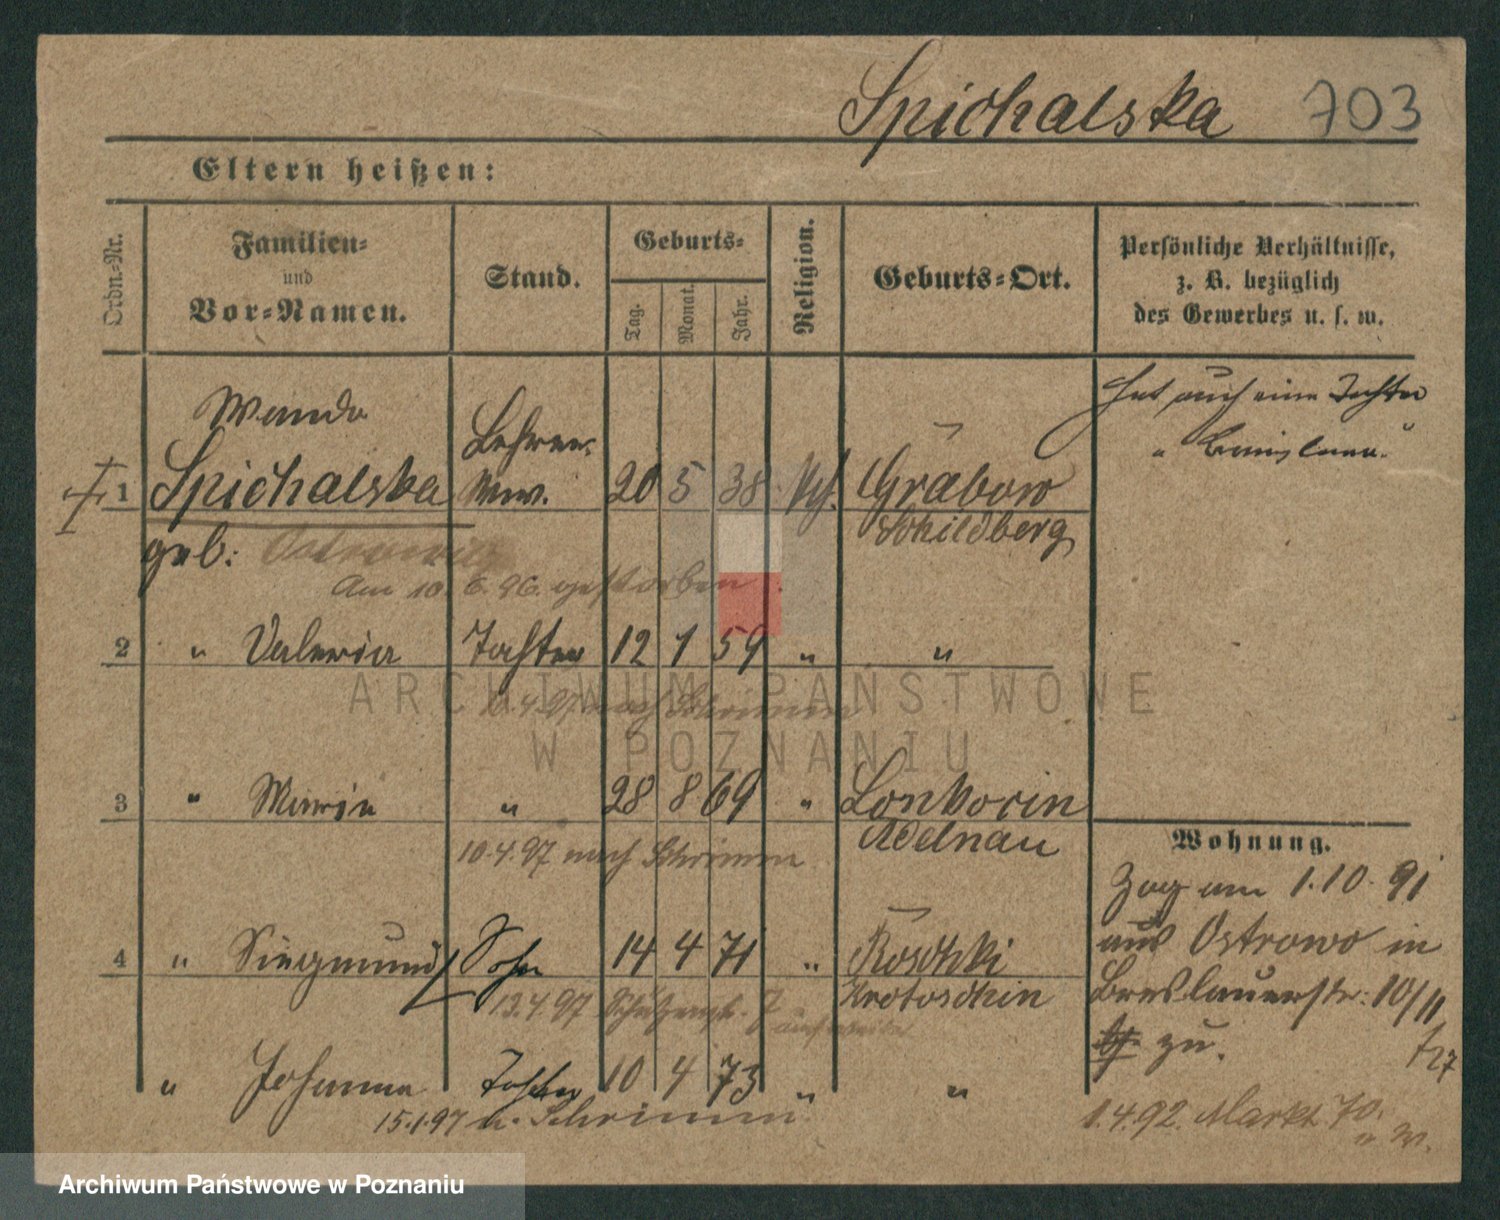 Spichalska 703
Eltern heißen:
Ordn.-Nr.
Familien-
und
Vor-Namen.
Stand.
Geburts-
Tag. Monat. Jahr.
Religion.
Geburts-Ort.
Persönliche Verhältnisse,
z. B. bezüglich
des Gewerbes u. s. w.
Hat auch eine Tochter
Wanda
Lehrer-
1 Spichalska Wwe. 20 5 38 kth. Grabow
Schildberg
geb:
Am 10. 6. 96. gestorben.
2 " Valeria Tochter 12 1 59 " "
10.4.97 nach Schrimm
3 " Maria " 28 8 69 " Lonkocin
Adelnau
10.4.97 nach Schrimm
4 " Siegmund Sohn 14 4 71 " Roschki
Krotoschin
13.4.97
" Johanna Tochter 10 4 73 " "
15.1.97 n. Schrimm.
Wohnung.
Zog am 1.10.91
aus Ostrowo in
Breslauerstr: 10/11
zu.
1.4.92. Markt 70.
ARCHIWUM PAŃSTWOWE
W POZNANIU
Archiwum Państwowe w Poznaniu